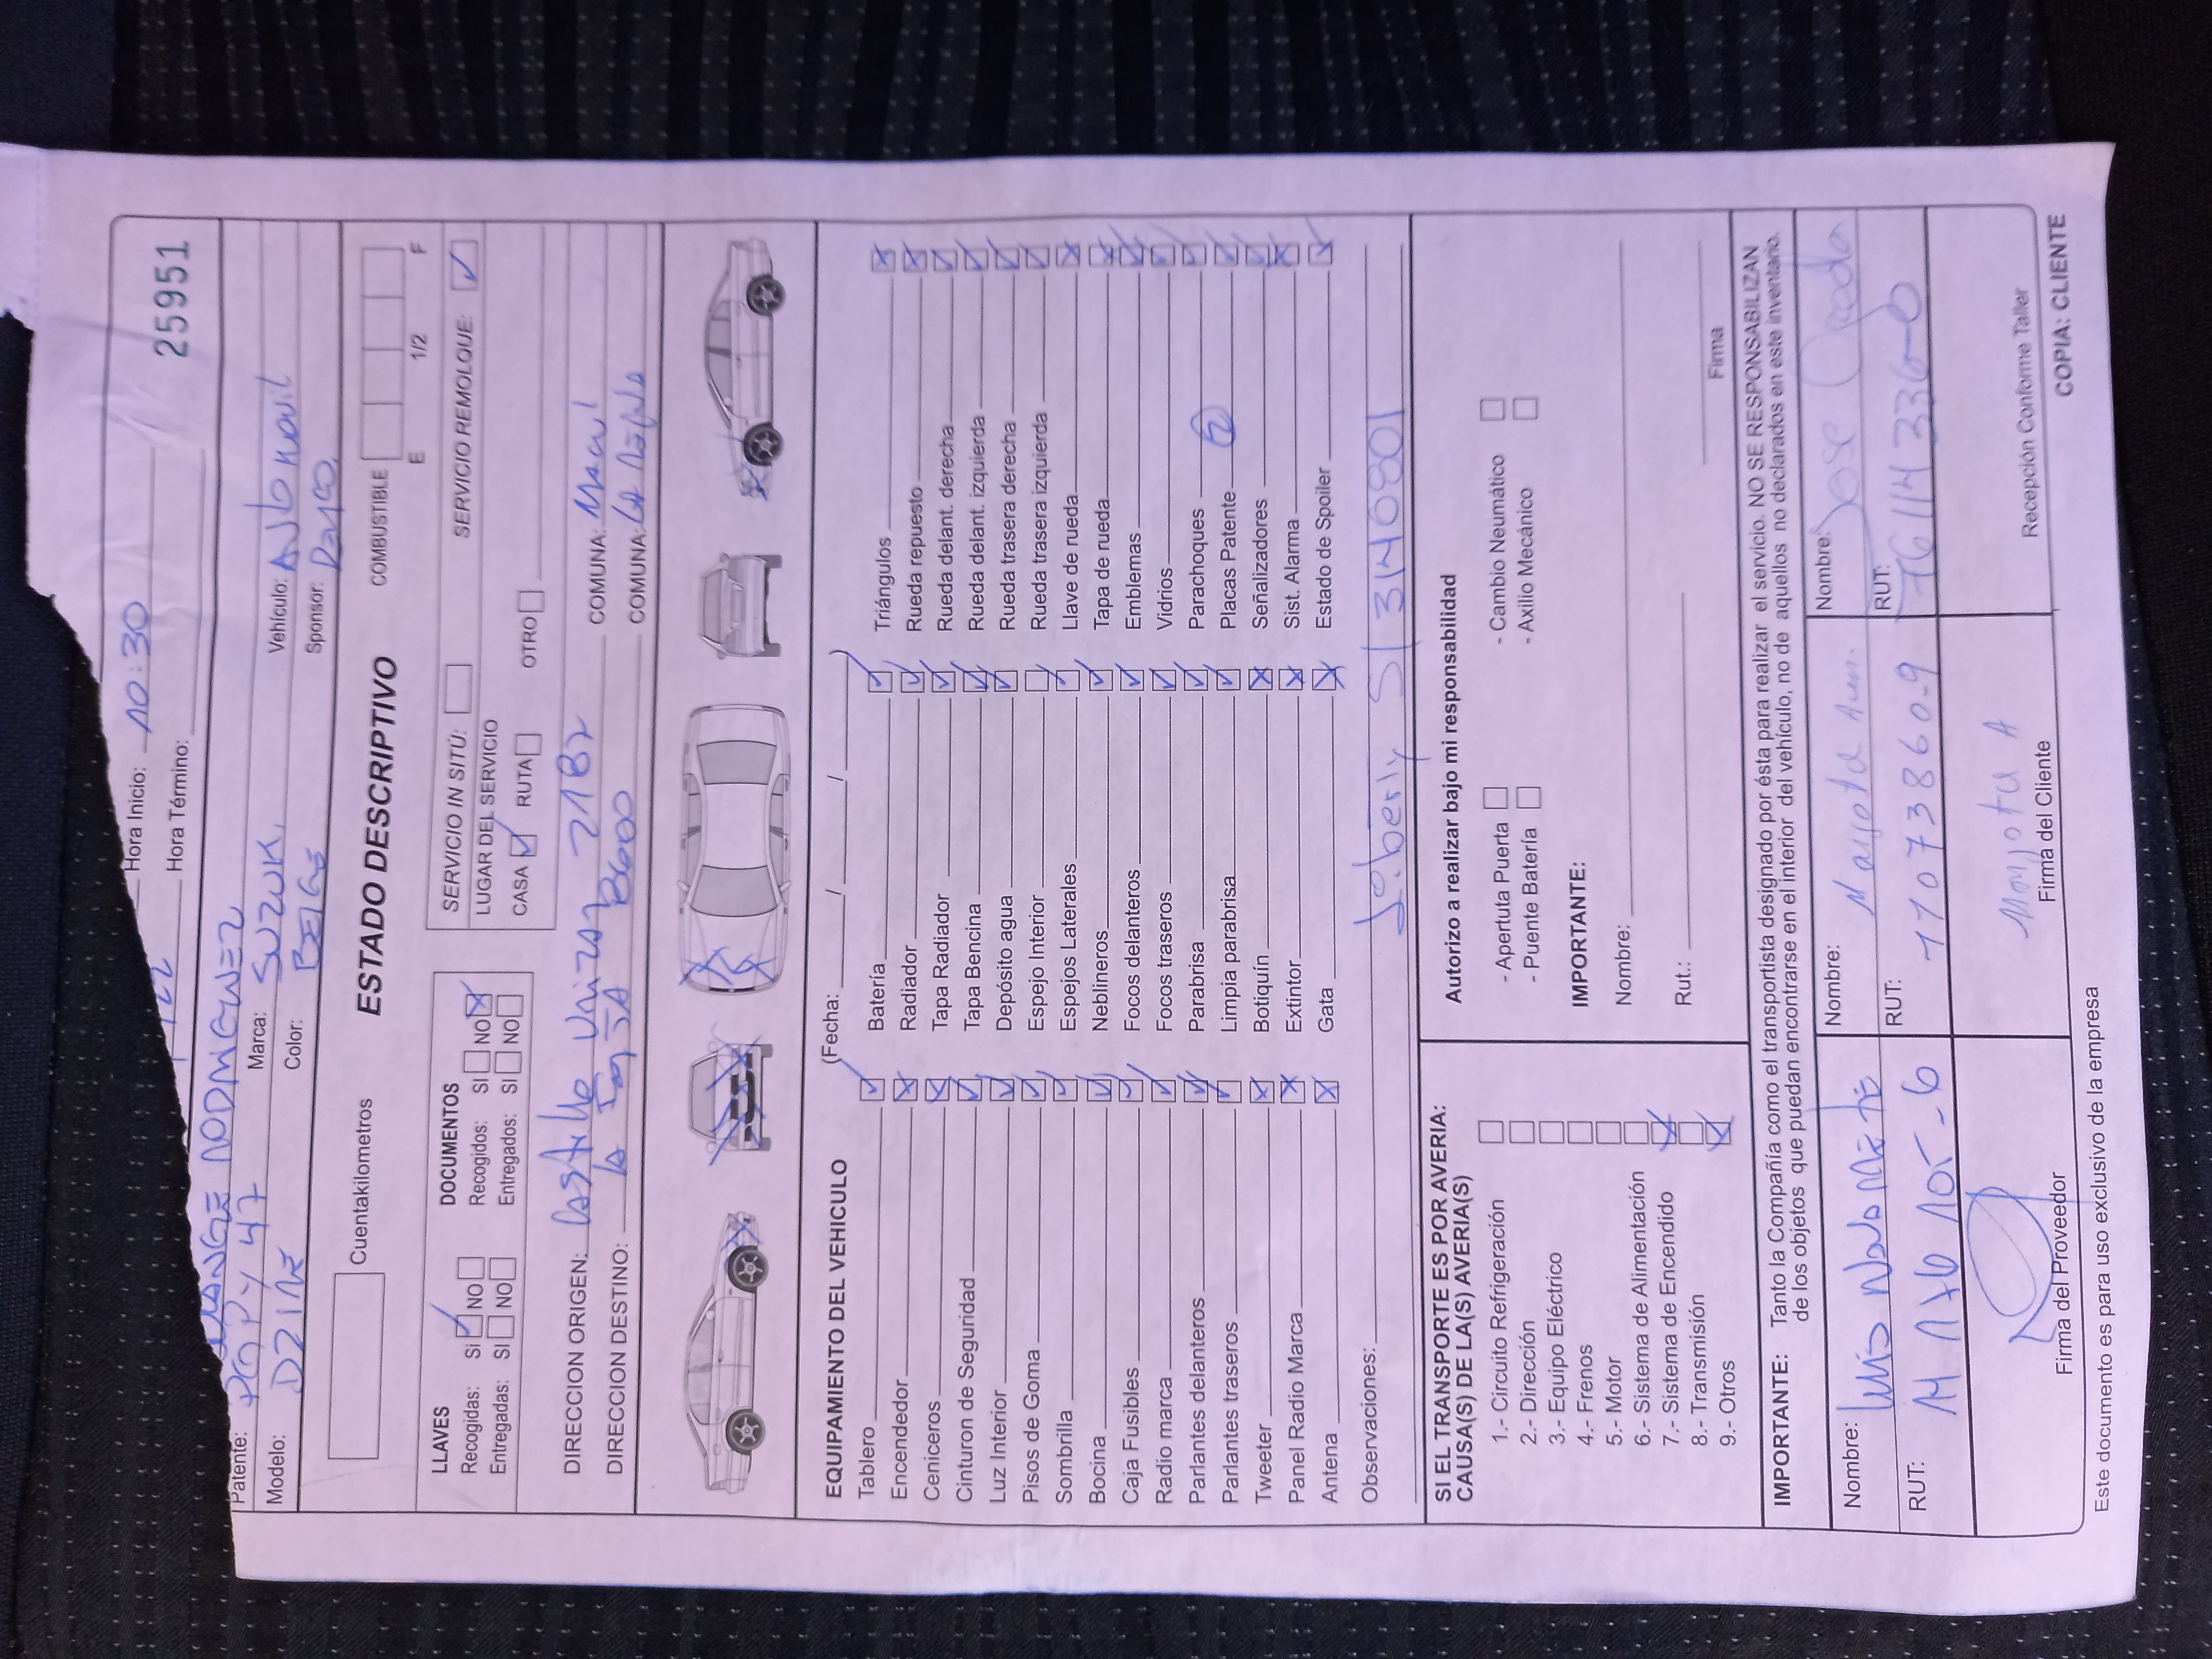 25951
Hora Inicio: 10:30
Hora Término:
Patente: PGPY 47 Marca: SUZUKI Vehículo: Automovil
Modelo: DZIRE Color: BEIGE Sponsor:
ESTADO DESCRIPTIVO
Cuentakilometros COMBUSTIBLE E 1/2 F
LLAVES DOCUMENTOS SERVICIO IN SITÚ: SERVICIO REMOLQUE:
Recogidas: SI NO Recogidos: SI NO LUGAR DEL SERVICIO
Entregadas: SI NO Entregados: SI NO CASA RUTA OTRO
DIRECCION ORIGEN: COMUNA: Macul
DIRECCION DESTINO: COMUNA: La Reina
EQUIPAMIENTO DEL VEHICULO (Fecha: / / )
Tablero Batería Triángulos
Encendedor Radiador Rueda repuesto
Ceniceros Tapa Radiador Rueda delant. derecha
Cinturon de Seguridad Tapa Bencina Rueda delant. izquierda
Luz Interior Depósito agua Rueda trasera derecha
Pisos de Goma Espejo Interior Rueda trasera izquierda
Sombrilla Espejos Laterales Llave de rueda
Bocina Neblineros Tapa de rueda
Caja Fusibles Focos delanteros Emblemas
Radio marca Focos traseros Vidrios
Parlantes delanteros Parabrisa Parachoques
Parlantes traseros Limpia parabrisa Placas Patente 2
Tweeter Botiquín Señalizadores
Panel Radio Marca Extintor Sist. Alarma
Antena Gata Estado de Spoiler
Observaciones: S/ 3140801
SI EL TRANSPORTE ES POR AVERIA: Autorizo a realizar bajo mi responsabilidad
CAUSA(S) DE LA(S) AVERIA(S)
1.- Circuito Refrigeración - Apertuta Puerta - Cambio Neumático
2.- Dirección - Puente Batería - Axilio Mecánico
3.- Equipo Eléctrico
4.- Frenos IMPORTANTE:
5.- Motor Nombre:
6.- Sistema de Alimentación
7.- Sistema de Encendido Rut.:
8.- Transmisión Firma
9.- Otros
IMPORTANTE: Tanto la Compañía como el transportista designado por ésta para realizar el servicio. NO SE RESPONSABILIZAN
de los objetos que puedan encontrarse en el interior del vehículo, no de aquellos no declarados en este inventario.
Nombre: Luis Nombre: Nombre: Jose
RUT: RUT: 11073860-9 RUT: 16114336-0
Firma del Proveedor Firma del Cliente Recepción Conforme Taller
Este documento es para uso exclusivo de la empresa COPIA: CLIENTE